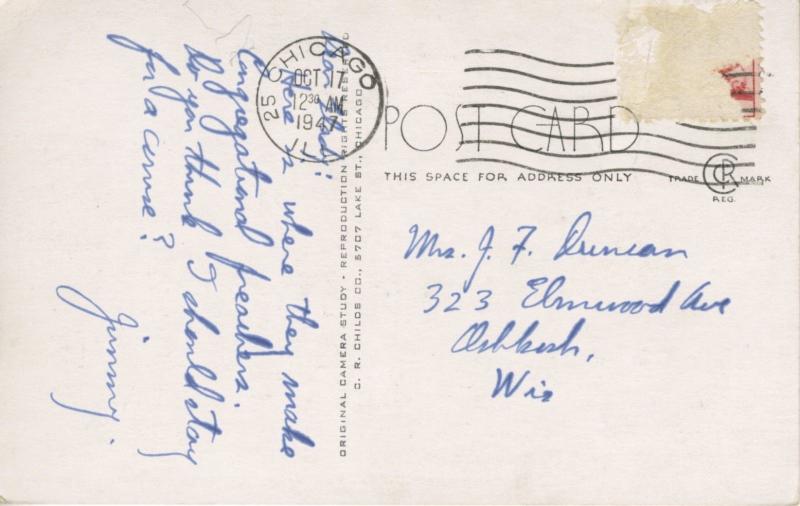 Here is where they make
Congregational preachers.
Do you think I should stay
for a course?
Jimmy.
ORIGINAL CAMERA STUDY - REPRODUCTION RIGHTS RESERVED
C. R. CHILDS CO., 5707 LAKE ST., CHICAGO.
CHICAGO 25
OCT 17
12 30 AM
1947
ILL
POST CARD
THIS SPACE FOR ADDRESS ONLY
TRADE CRC MARK
REG.
Mrs. J. F. Duncan
323 Elmwood Ave
Oshkosh,
Wis